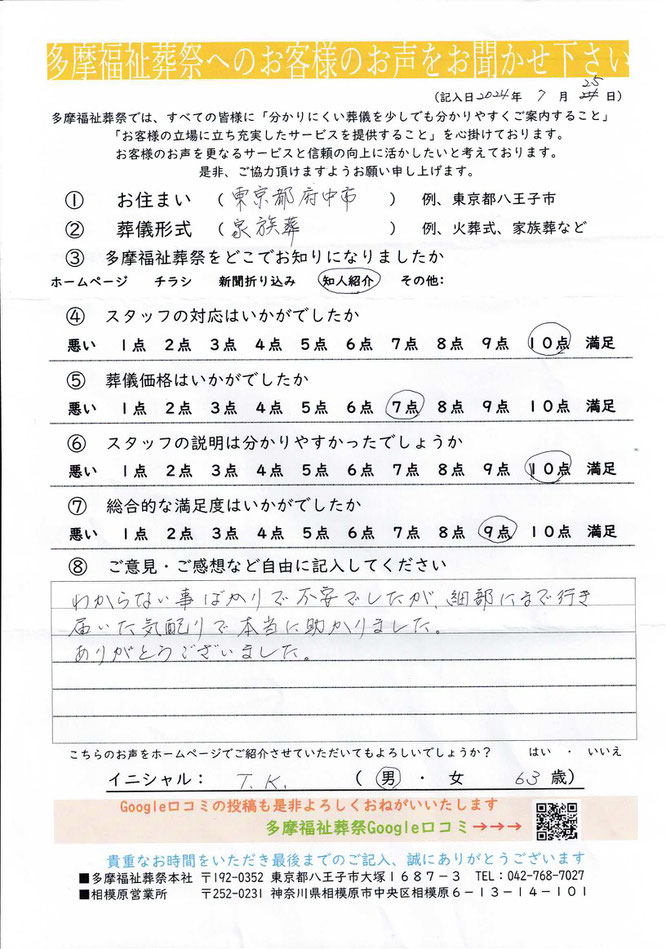 多摩福祉葬祭へのお客様のお声をお聞かせ下さい
(記入日2024年 7月 25日)
多摩福祉葬祭では、すべての皆様に「分かりにくい葬儀を少しでも分かりやすくご案内すること」
「お客様の立場に立ち充実したサービスを提供すること」を心掛けております。
お客様のお声を更なるサービスと信頼の向上に活かしたいと考えております。
是非、ご協力頂けますようお願い申し上げます。
① お住まい (東京都府中市) 例、東京都八王子市
② 葬儀形式 (家族葬) 例、火葬式、家族葬など
③ 多摩福祉葬祭をどこでお知りになりましたか
ホームページ チラシ 新聞折り込み 知人紹介 その他:
④ スタッフの対応はいかがでしたか
悪い 1点 2点 3点 4点 5点 6点 7点 8点 9点 10点 満足
⑤ 葬儀価格はいかがでしたか
悪い 1点 2点 3点 4点 5点 6点 7点 8点 9点 10点 満足
⑥ スタッフの説明は分かりやすかったでしょうか
悪い 1点 2点 3点 4点 5点 6点 7点 8点 9点 10点 満足
⑦ 総合的な満足度はいかがでしたか
悪い 1点 2点 3点 4点 5点 6点 7点 8点 9点 10点 満足
⑧ ご意見・ご感想など自由に記入してください
わからない事ばかりで不安でしたが、細部にまで行き
届いた気配りで本当に助かりました。
ありがとうございました。
こちらのお声をホームページでご紹介させていただいてもよろしいでしょうか? はい ・ いいえ
イニシャル: T.K. (男・女 63歳)
Google口コミの投稿も是非よろしくおねがいいたします
多摩福祉葬祭Google口コミ→→→
貴重なお時間をいただき最後までのご記入、誠にありがとうございます
■多摩福祉葬祭本社 〒192-0352 東京都八王子市大塚1687-3 TEL:042-768-7027
■相模原営業所 〒252-0231 神奈川県相模原市中央区相模原6-13-14-101